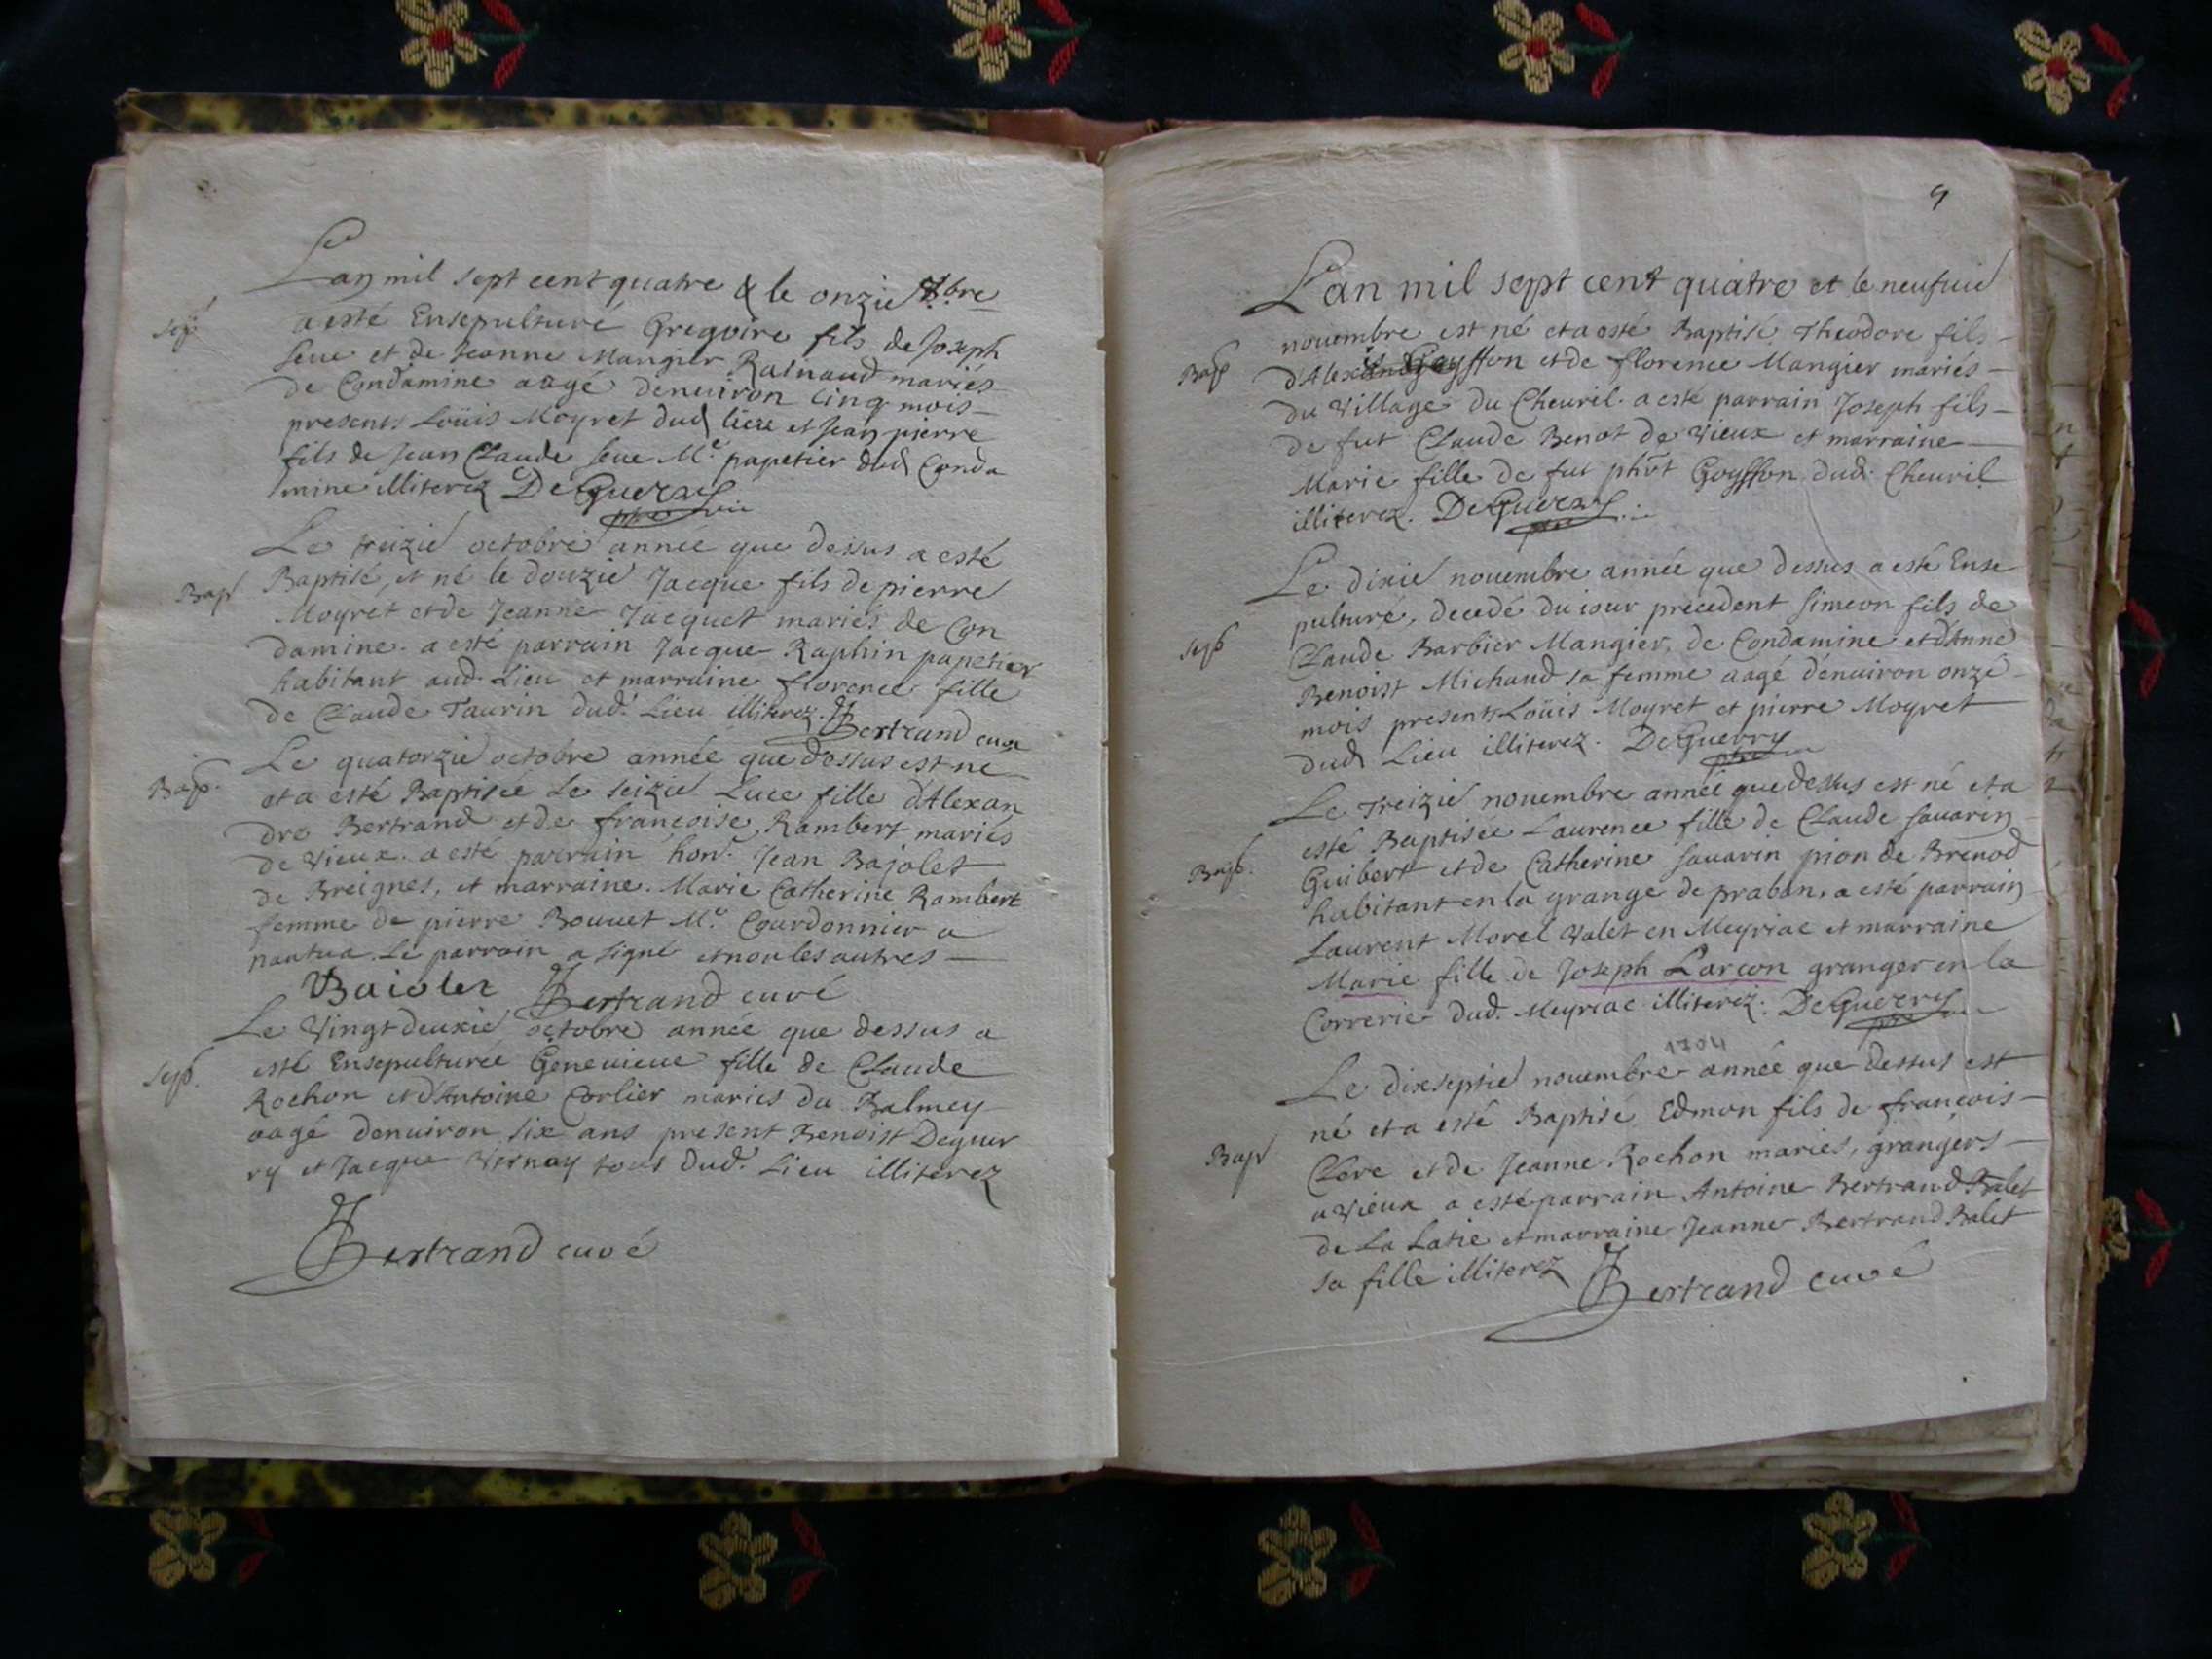 Lan mil sept cent quatre & le onzie 8.bre
sep
a esté Ensepulturé Gregoire fils de Joseph
seue et de Jeanne Mangier Rainaud mariés
de Condamine aagé denuiron cinq mois
presents Loüis Moyret dud lieu et Jean pierre
fils de Jean Claude seue M.e papetier dud Conda
mine illiterez DeGuerry
ptre
Le treizie octobre année que dessus a esté
Bap
Baptisé, et né le douzie Jacque fils de pierre
Moyret et de Jeanne Jacquet mariés de Con
damine. a esté parrain Jacque Raphin papetier
habitant aud. Lieu et marraine florence fille
de Claude Taurin dud. Lieu illiterez. Bertrand curé
Le quatorzie octobre année que dessus est né
Bap.
et a esté Baptisée Le seizie Luce fille d'Alexan
dre Bertrand et de françoise Rambert mariés
de Vieux. a esté parrain hon. Jean Bajolet
de Breignes, et marraine. Marie Catherine Rambert
femme de pierre Bouuet M.e Courdonnier a
nantua. Le parrain a signé et non les autres
Baiolet Bertrand curé
Le Vingt deuxie octobre année que dessus a
sep.
esté Ensepulturée Geneuieue fille de Claude
Rochon et d'Antoine Corlier mariés du Balmey
aagé denuiron six ans present Benoist Deguer
ry et Jacque Vernay tous dud. Lieu illiterez
Bertrand curé
9
L'an mil sept cent quatre et le neufuie
nouembre est né et a esté Baptisé Theodore fils
Bap
d'Alexis Goyffon et de florence Mangier mariés
du Village du Cheuril. a esté parrain Joseph fils
de fut Claude Benot de Vieux et marraine
Marie fille de fut phbt Goyffon dud. Cheuril
illiterez. DeGuerry
ptre
Le dixie nouembre année que dessus a esté Ense
pulturé, decedé du iour precedent Simeon fils de
sep
Claude Barbier Mangier, de Condamine et d'Anne
Benoist Michaud sa femme aagé d'enuiron onze
mois presents Loüis Moyret et pierre Moyret
dud Lieu illiterez. DeGuerry
ptre
Le Treizie nouembre année que dessus est né et a
esté Baptisée Laurence fille de Claude sauarin
Bap.
Guibert et de Catherine sauarin pion de Brenod
habitant en la grange de prabon, a esté parrain
Laurent Morel Valet en Meyriac et marraine
Marie fille de Joseph Larcon granger en la
Correrie dud. Meyriac illiteréz. DeGuerry
ptre
1704
Le dixseptie nouembre année que dessus est
né et a esté Baptisé Edmon fils de françois
Bap
Clere et de Jeanne Rochon mariés, grangers
a Vieux a esté parrain Antoine Bertrand Balet
de La Latie et marraine Jeanne Bertrand Balet
sa fille illiterez Bertrand curé